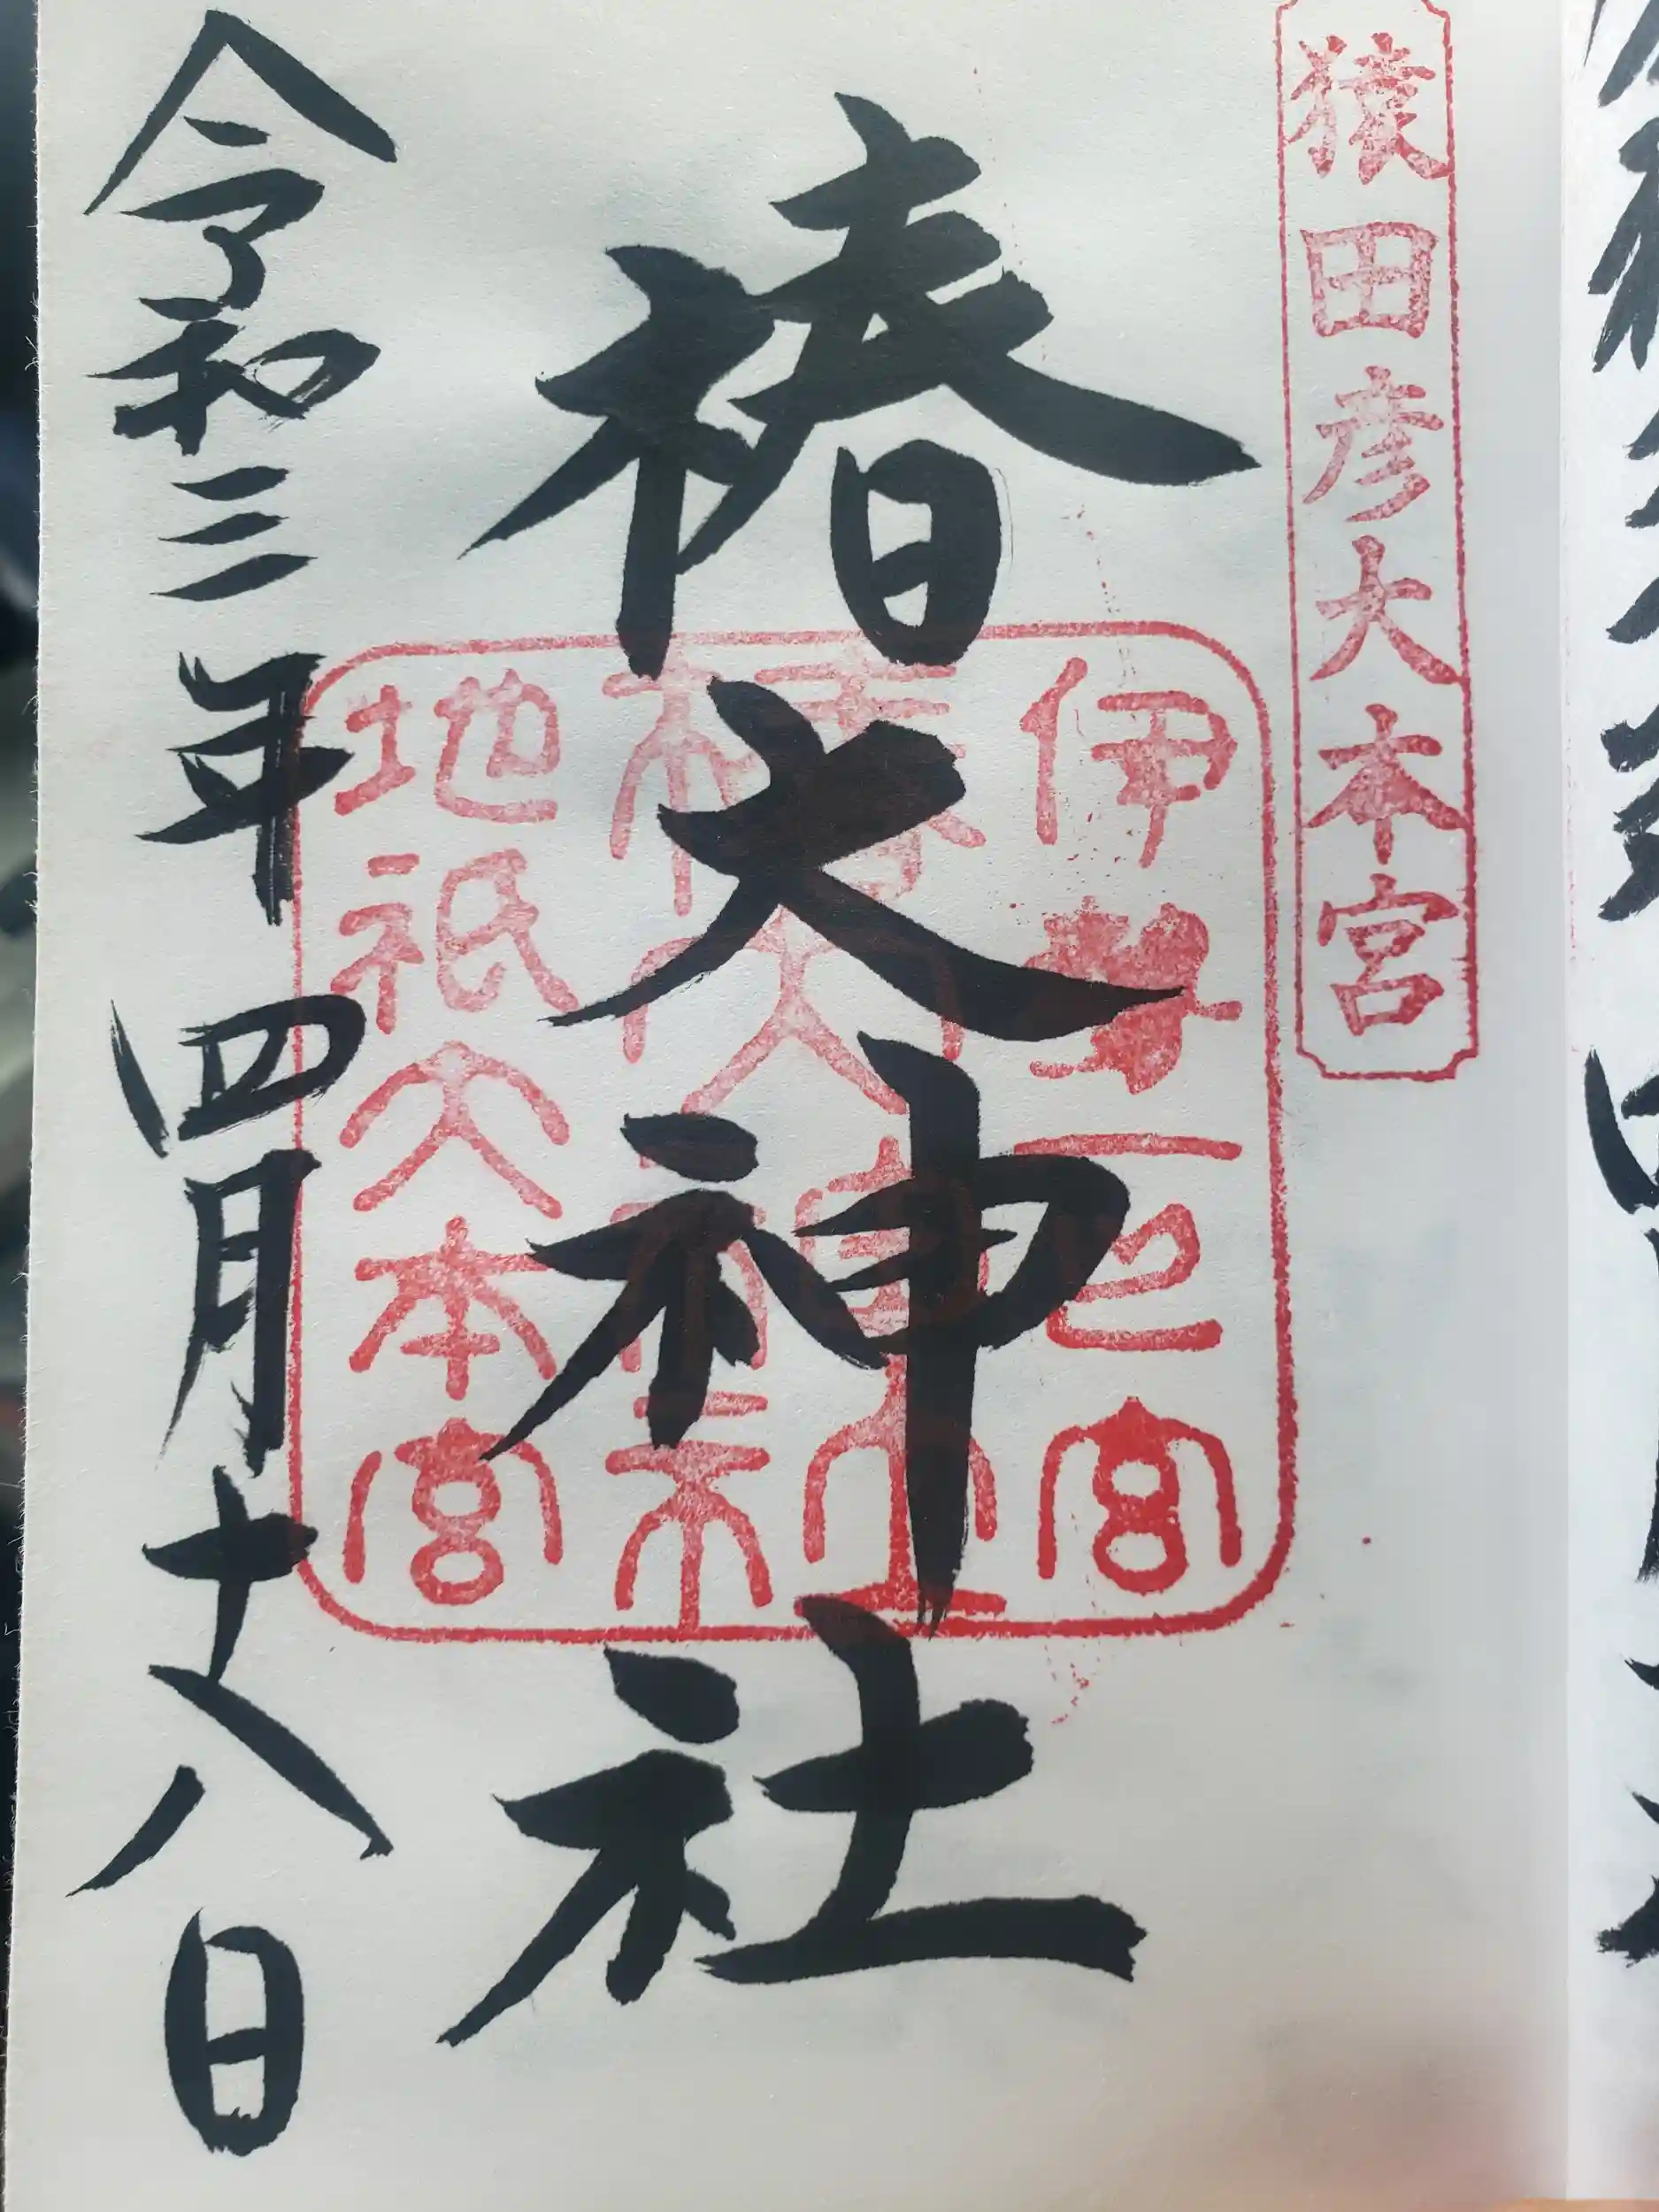 猿田彦大本宮
椿大神社
伊勢一之宮
椿大神社
地祇大本宮
令和三年四月十八日